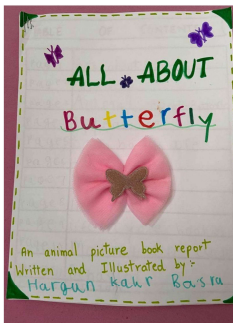 ALL ABOUT
Butterfly
An animal picture book report
Written and Illustrated by :-
Hargun Kaur Basra